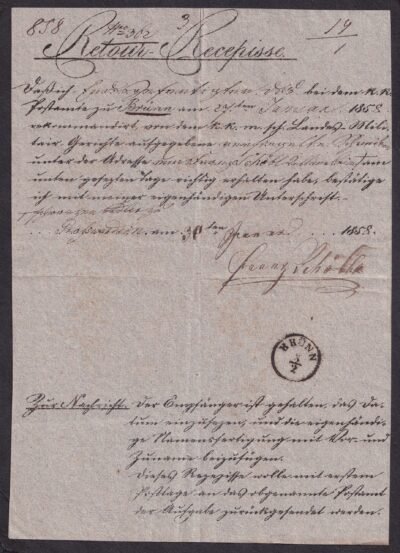 858 No 362 3 19/1
Retour-Recepisse.
Daß ich Endesgefertigter das bei dem k. k.
Postamte zu Brünn am 27ten Januar 1858
rekommandirt von dem k. k. m. sch. Landes-Mili-
tair Gerichte aufgegebene
unter der Adresse am
unten gesezten Tage richtig erhalten habe, bestätige
ich mit meiner eigenhändigen Unterschrift.
am 30ten Januar 1858
Franz
BRÜNN
Zur Nachricht. Der Empfänger ist gehalten, das Da-
tum einzusezen, und die eigenhändi-
ge Namensfertigung mit Vor- und
Zuname beizufügen.
Dieses Rezepisse wolle mit erstem
Posttage an das obgenannte Postamt
der Aufgabe zurückgesendet werden.